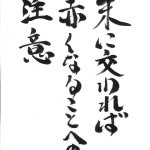 朱に交われば
赤くなることへの
注意